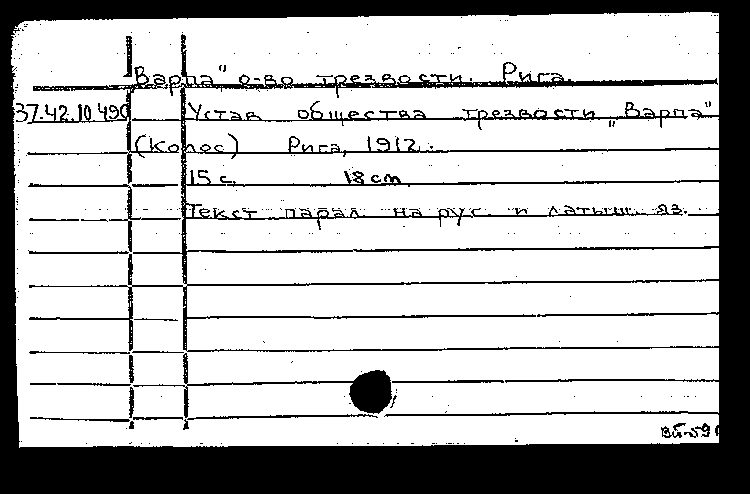 „Варпа" о-во трезвости. Рига.
37.42.10.490 Устав общества трезвости „Варпа"
(Колос) Рига, 1912.
15 с. 18 cm
Текст парал. на рус. и латыш. яз.